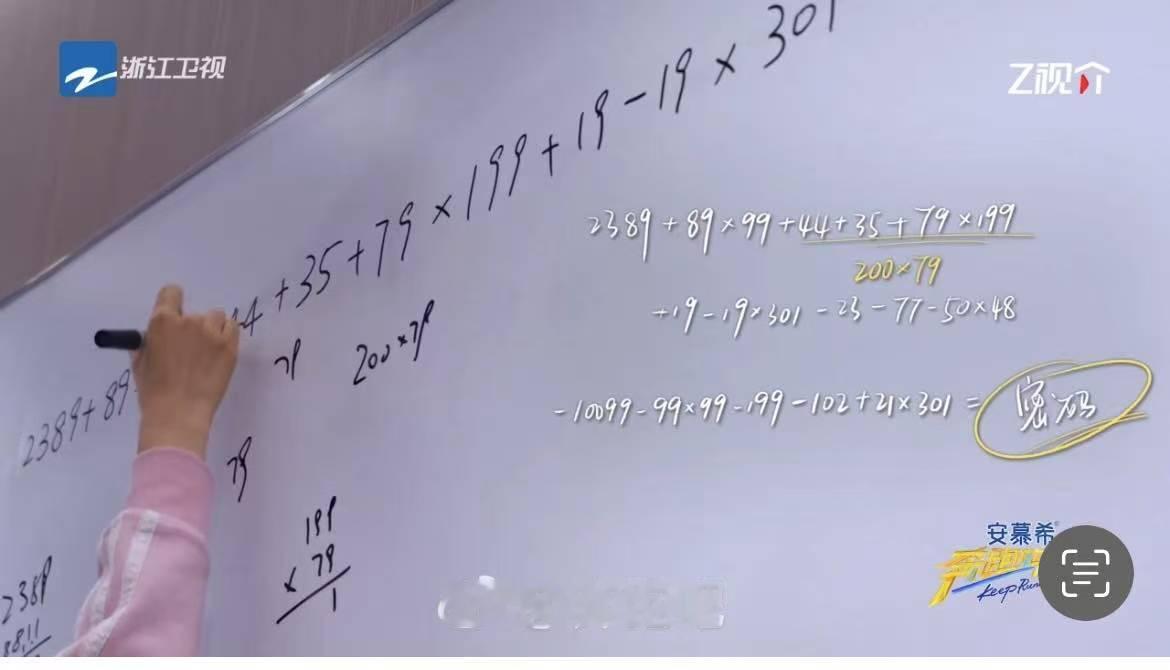 浙江卫视
Z视介
2389+89
44+35+79×199+19-19×301
79
200×79
79
199
×79
1
2389
2389+89×99+44+35+79×199
200×79
+19-19×301-23-77-50×48
-10099-99×99-199-102+21×301=密码
安慕希
奔跑
Keep Run